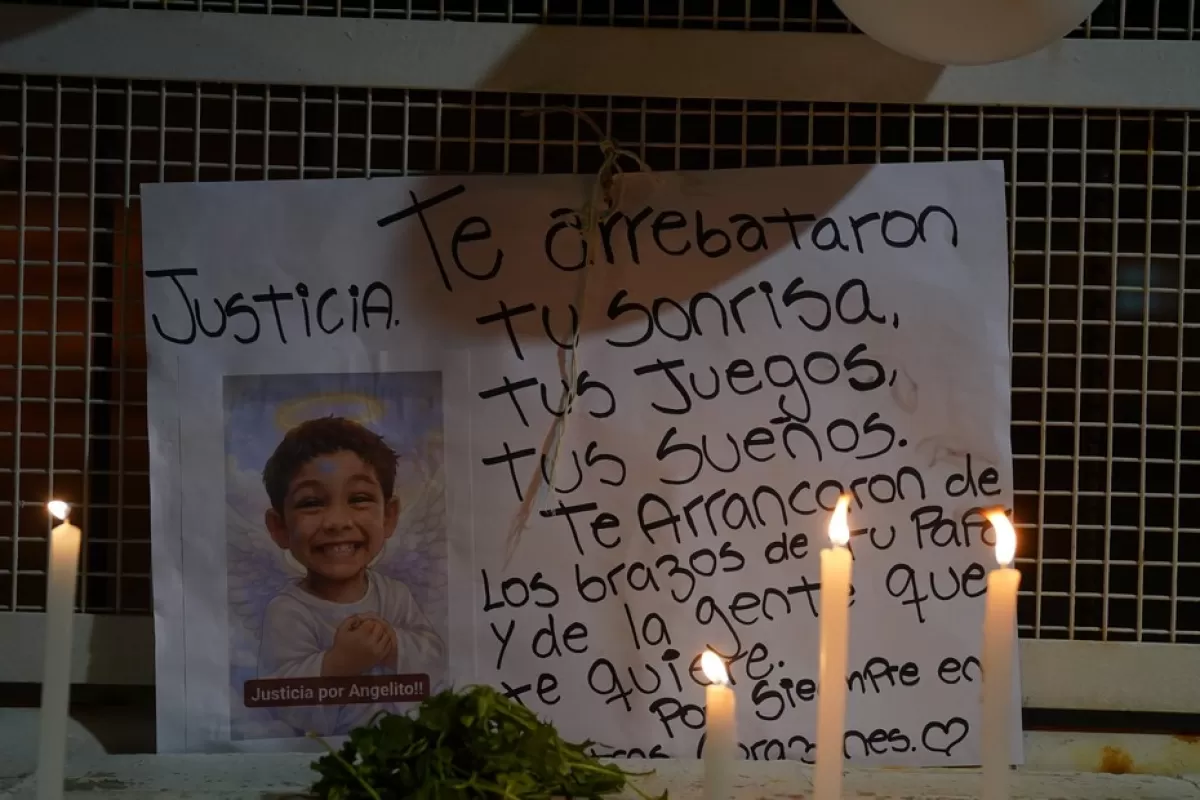 Justicia.
Te arrebataron
tu sonrisa,
tus Juegos,
tus sueños.
Te Arrancaron de
Los brazos de tu Papá
y de la gente que
te quiere.
Por Siempre en
Corazones.
Justicia por Angelito!!